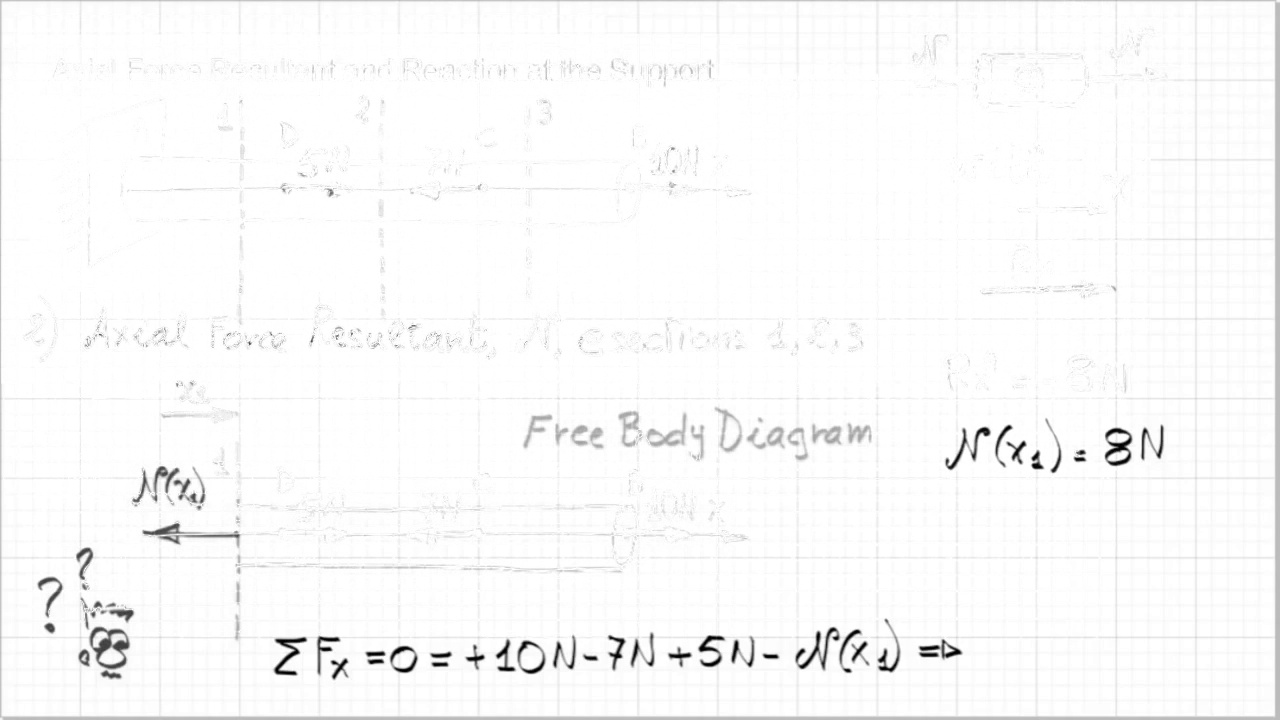 Axial Force Resultant and Reaction at the Support
N N
1 2 3
D 5N 7N C 10N x
2) Axial Force Resultant, N, @sections 1, 2, 3
Rx = -8N
x1
Free Body Diagram
N(x1) = 8N
N(x1) 1 D 5N 7N C 10N x
? ?
ΣFx = 0 = +10N - 7N + 5N - N(x1) ⇒